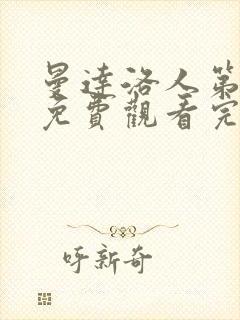 曼達洛人第
免費觀看完
呀新奇